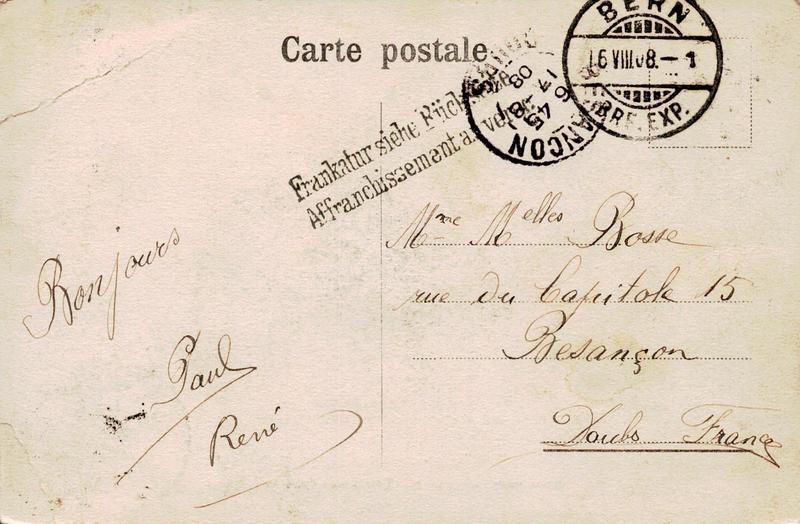 Carte postale
BERN
16 VIII 08.– 1
BRF. EXP.
17
08
6 45
ANCON
Frankatur siehe Rück
Affranchissement au verso
Mme Melles Bosse
rue du Capitole 15
Besançon
Doubs France
Bonjours
Paul
René